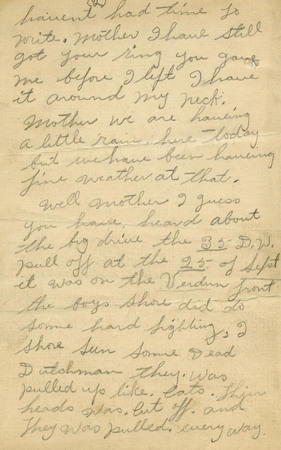 (2)
havent had time to
write. Mother I have still
got your ring you gave
me before I left I have
it around my neck.
Mother we are having
a little rain here today
but we have been having
fine weather at that.
Well Mother I guess
you have heard about
the big drive the 35 D.W.
pull off at the 25 of Sept
it was on the Verdun front
the boys shore did do
some hard fighting, I
shore seen some Dead
Dutchman they. was
pulled up like. Cats. Their
heads was. Cut off. and
They was pulled. every way.